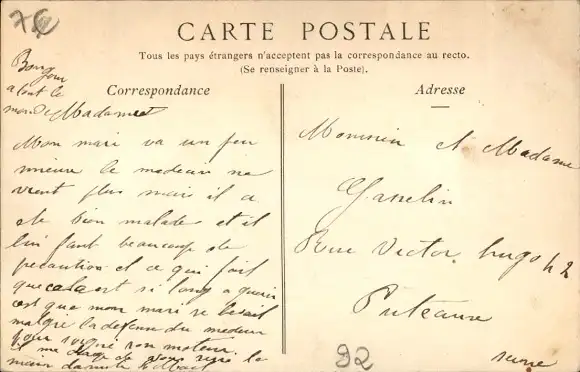 7€
CARTE POSTALE
Tous les pays étrangers n'acceptent pas la correspondance au recto.
(Se renseigner à la Poste).
Correspondance
Adresse
Bonjour
a tout le
monde Madame
Mon mari va un peu
mieux le medecin ne
vient plus mais il a
ete bien malade et il
lui faut beaucoup de
precaution et ce qui fait
que est si long a guerir
cest que mon mari se
malgré la defense du medecin
pour son moteur.
et me de vous la
main
Monsieur et Madame
Gasselin
Rue Victor hugo 42
Puteaux
seine
92